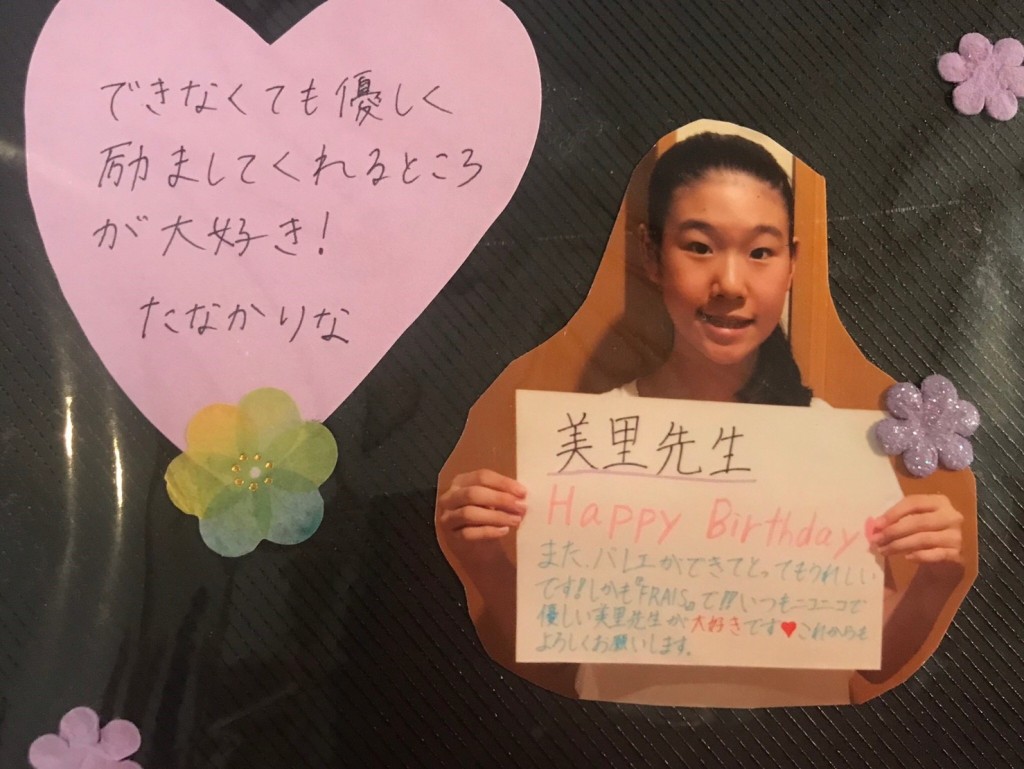 できなくても優しく
励ましてくれるところ
が大好き!
たなかりな
美里先生
Happy Birthday♥
また、バレエができてとってもうれしい
です!しかも『FRAIS』で!!いつもニコニコで
優しい美里先生が大好きです♥これからも
よろしくお願いします。